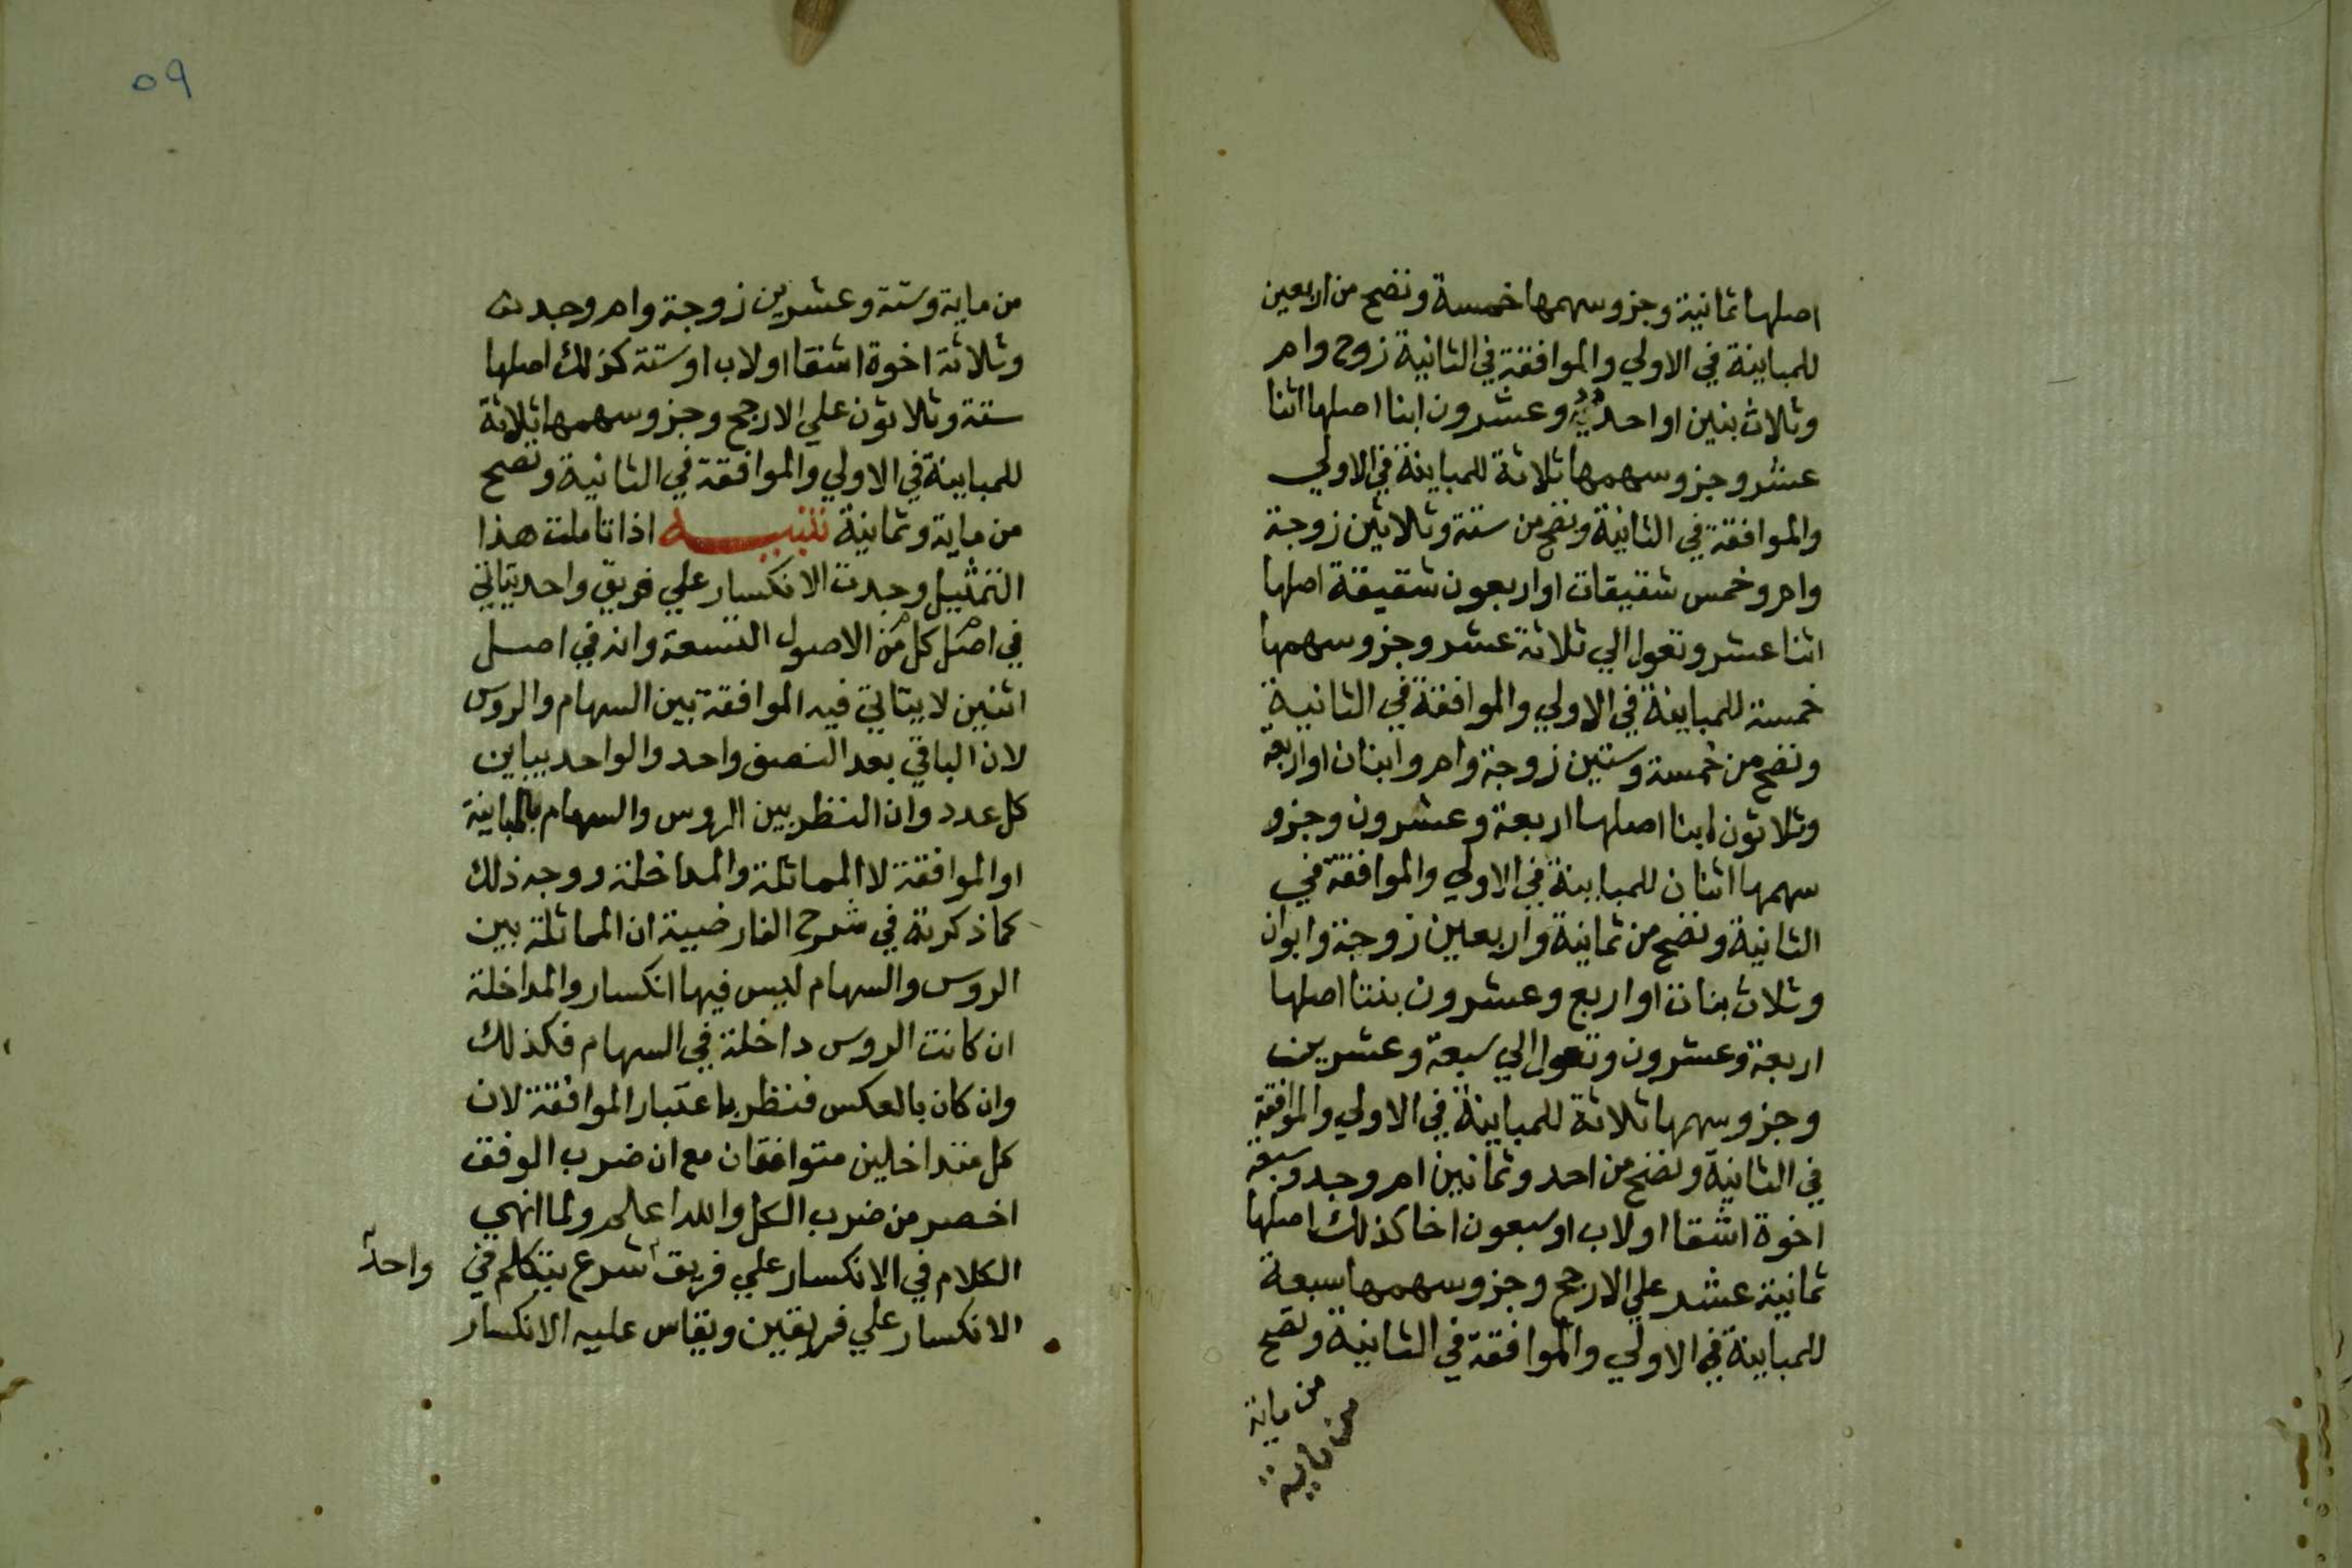 اصلها ثمانية وجزو سهمها خمسة وتصح من اربعين
للمباينة في الاولي والموافقة في الثانية زوج وام
وثلاث بنين او احد وعشرون ابنا اصلها اثنا
عشر وجزو سهمها ثلاثة للمباينة في الاولي
والموافقة في الثانية وتصح من ستة وثلاثين زوجة
وام وخمس شقيقات او اربعون شقيقة اصلها
اثنا عشر وتعول الي ثلاثة عشر وجزو سهمها
خمسة للمباينة في الاولي والموافقة في الثانية
وتصح من خمسة وستين زوجة وام وابنان او اربعة
وثلاثون ابنا اصلها اربعة وعشرون وجزو
سهمها اثنان للمباينة في الاولي والموافقة في
الثانية وتصح من ثمانية واربعين زوجة وابوان
وثلاث بنات او اربع وعشرون بنتا اصلها
اربعة وعشرون وتعول الي سبعة وعشرين
وجزو سهمها ثلاثة للمباينة في الاولي والموافقة
في الثانية وتصح من احد وثمانين ام وجد وسبعة
اخوة اشقا او لاب او سبعون اخا كذلك اصلها
ثمانية عشر علي الارجح وجزو سهمها سبعة
للمباينة في الاولي والموافقة في الثانية وتصح
من ماية
من ماية
٥٩
من ماية وستة وعشرين زوجة وام وجد
وثلاثة اخوة اشقا او لاب او ستة كذلك اصلها
ستة وثلاثون علي الارجح وجزو سهمها ثلاثة
للمباينة في الاولي والموافقة في الثانية وتصح
من ماية وثمانية تنبيه اذا تاملت هذا
التمثيل وجدت الانكسار علي فريق واحد يتاتي
في اصل كل من الاصول التسعة وان في اصل
اثنين لا يتاتي فيه الموافقة بين السهام والروس
لان الباقي بعد النصف واحد والواحد يباين
كل عدد وان النظر بين الروس والسهام بالمباينة
او الموافقة لا المماثلة والمداخلة ووجه ذلك
كما ذكرته في شرح الفارضية ان المماثلة بين
الروس والسهام ليس فيها انكسار والمداخلة
ان كانت الروس داخلة في السهام فكذلك
وان كان بالعكس فنظر باعتبار الموافقة لان
كل متداخلين متوافقان مع ان ضرب الوفق
اخصر من ضرب الكل والله اعلم ولما انهي
الكلام في الانكسار علي فريق شرع يتكلم في
واحد
الانكسار علي فريقين ويقاس عليه الانكسار